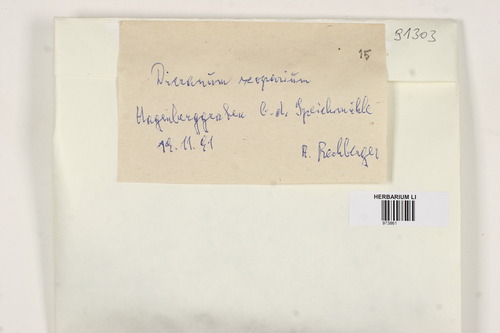 91303
15
Dicranum scoparium
Hagenberggraben b. d. Speichmühle
19.11.91
A. Rechberger
HERBARIUM LI